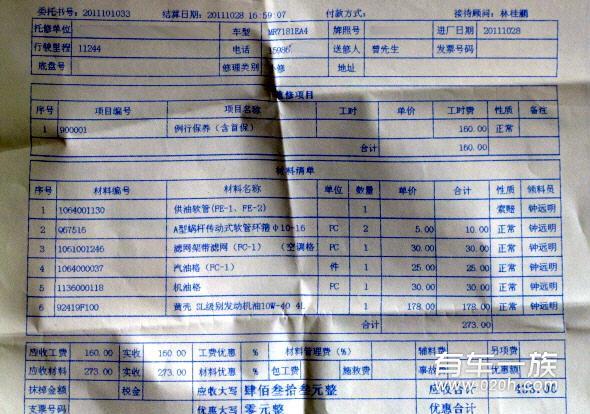 委托书号：2011101033 结算日期：20111028 16:59:07 付款方式： 接待顾问：林桂鹏
托修单位 车型 MR7181EA4 牌照号 进厂日期 20111028
行驶里程 11244 电话 15986 送修人 曾先生 发票号码
底盘号 修理类别 修 地址
修项目
序号 项目编号 项目名称 工时 单价 工时费 性质 备注
1 900001 例行保养（含首保） 160.00 正常
合计 160.00
材料清单
序号 材料编号 材料名称 单位 数量 单价 合计 性质 领料员
1 1064001130 供油软管(FE-1、FE-2) 1 索赔 钟远明
2 Q67516 A型蜗杆传动式软管环箍 φ10-16 PC 2 5.00 10.00 正常 钟远明
3 1061001246 滤网架带滤网（FC-1） （空调格 PC 1 30.00 30.00 正常 钟远明
4 1064000037 汽油格（FC-1） 件 1 25.00 25.00 正常 钟远明
5 1136000118 机油格 PC 1 30.00 30.00 正常 钟远明
6 92419F100 黄壳 SL级别发动机油10W-40 4L 1 178.00 178.00 正常 钟远明
合计 273.00
应收工费 160.00 实收 160.00 工费优惠 % 材料管理费(%) 辅料费 另项费
应收材料 273.00 实收 273.00 材料优惠 % 包工费 施救费 事故 优惠额
抹掉金额 税金 应收大写 肆佰叁拾叁元整 应收合计 433.00
支票号码 优惠大写 零元整 优惠合计
有车一族
www.020h.com